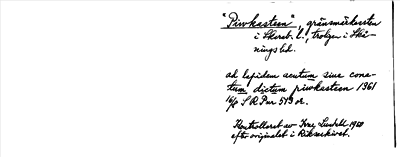 "Piwkasteen", gränsmärkesten
i Skarab. l., troligen i Skå-
nings hd.
ad lapidem acutum siue cona-
tum dictum piwkasteen 1361
16/6 SRP nr 519 or.
Kontrollerat av Ivar Lundahl 1950
efter originalet i Riksarkivet.